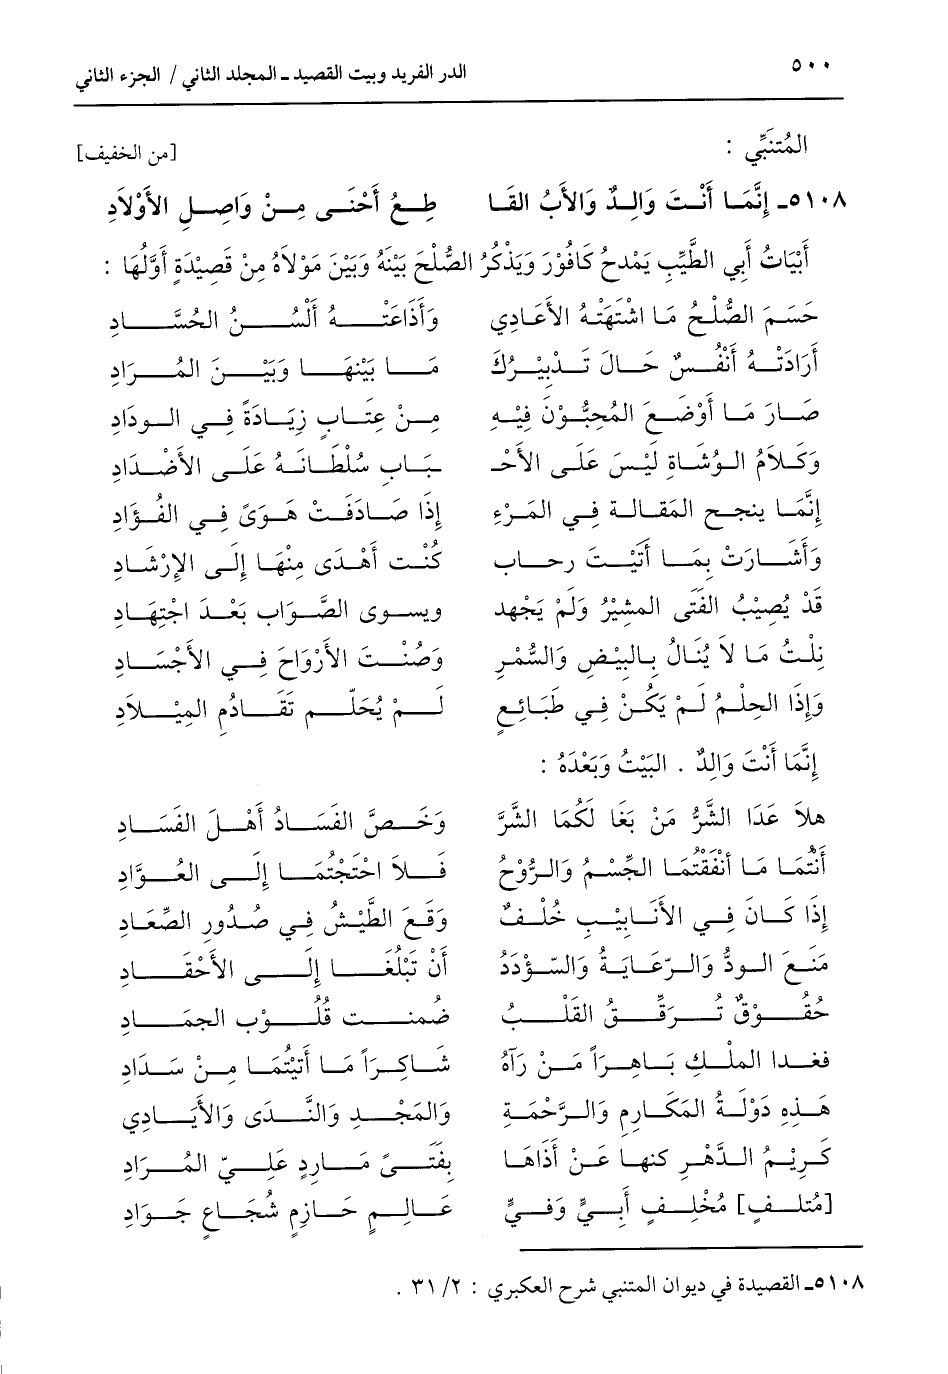 ٥٠٠
الدر الفريد وبيت القصيد ـ المجلد الثاني / الجزء الثاني
المُتَنَبِّي : [من الخفيف]
٥١٠٨ـ إِنَّمَا أَنْتَ وَالِدٌ وَالأَبُ القَا طِعُ أَحْنَى مِنْ وَاصِلِ الأَوْلَادِ
أَبْيَاتُ أَبِي الطَّيِّبِ يَمْدَحُ كَافُوْرَ وَيَذْكُرُ الصُّلْحَ بَيْنَهُ وَبَيْنَ مَوْلَاهُ مِنْ قَصِيْدَةٍ أَوَّلُهَا :
حَسَمَ الصُّلْحُ مَا اشْتَهَتْهُ الأَعَادِي وَأَذَاعَتْهُ أَلْسُنُ الحُسَّادِ
أَرَادَتْهُ أَنْفُسٌ حَالَ تَدْبِيْرُكَ مَا بَيْنَهَا وَبَيْنَ المُرَادِ
صَارَ مَا أَوْضَعَ المُخِبُّوْنَ فِيْهِ مِنْ عِتَابٍ زِيَادَةً فِي الوِدَادِ
وَكَلَامُ الوُشَاةِ لَيْسَ عَلَى الأَحْـ بَابِ سُلْطَانُهُ عَلَى الأَضْدَادِ
إِنَّمَا ينجح المَقَالَةُ فِي المَرْءِ إِذَا صَادَفَتْ هَوًى فِي الفُؤَادِ
وَأَشَارَتْ بِمَا أَتَيْتَ رحاب كُنْتَ أَهْدَى مِنْهَا إِلَى الإِرْشَادِ
قَدْ يُصِيْبُ الفَتَى المشيْرُ وَلَمْ يَجْهِد ويسوى الصَّوَاب بَعْدَ اجْتِهَادِ
نِلْتُ مَا لَا يُنَالُ بِالبِيْضِ وَالسُّمْرِ وَصُنْتَ الأَرْوَاحَ فِي الأَجْسَادِ
وَإِذَا الحِلْمُ لَمْ يَكُنْ فِي طَبَائِعِ لَمْ يُحَلِّمِ تَقَادُمُ المِيْلَادِ
إِنَّمَا أَنْتَ وَالِدٌ . البَيْتُ وَبَعْدَهُ :
هلاَ عَدَا الشَّرُّ مَنْ بَغَا لَكُمَا الشَّرَّ وَخَصَّ الفَسَادُ أَهْلَ الفَسَادِ
أَنْتُمَا مَا أَنْفَقْتُمَا الجِّسْمُ وَالرُّوْحُ فَلاَ احْتَجْتُمَا إِلَى العُوَّادِ
إِذَا كَانَ فِي الأَنَابِيْبِ خُلْفٌ وَقَعَ الطَّيْشُ فِي صُدُورِ الصِّعَادِ
مَنَعَ الودُّ وَالرِّعَايَةُ وَالسُّؤْدَدُ أَنْ تَبْلُغَا إِلَى الأَحْقَادِ
حُقُوْقٌ تُرَقِّقُ القَلْبَ ضُمنت قُلُوْبِ الجَمَادِ
فغدا المُلْك بَاهِراً مَنْ رَآهُ شَاكِراً مَا أَتَيْتُمَا مِنْ سَدَادِ
هَذِهِ دَوْلَةُ المَكَارِمِ وَالرَّحْمَةِ وَالمَجْدِ وَالنَّدَى وَالأَيَادِي
كَرِيْمُ الدَّهْرِ كنها عَنْ أَذَاهَا بِفَتَىً مَارِدٍ عَلِيّ المُرَادِ
[مُتْلِفٍ] مُخْلِفٍ أَبِيٍّ وَفِيٍّ عَالِمٍ حَازِمٍ شُجَاعٍ جَوَادِ
٥١٠٨ـ القصيدة في ديوان المتنبي شرح العكبري : ٢/ ٣١ .